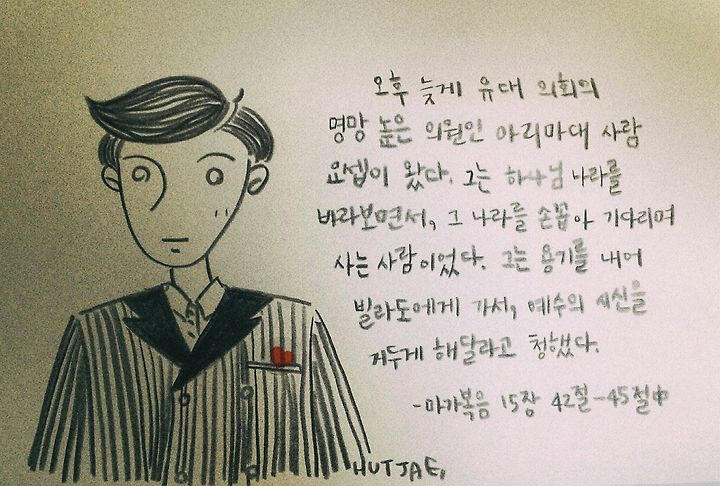 오후 늦게 유대 의회의
명망 높은 의원인 아리마대 사람
요셉이 왔다. 그는 하나님 나라를
바라보면서, 그 나라를 손꼽아 기다리며
사는 사람이었다. 그는 용기를 내어
빌라도에게 가서, 예수의 시신을
거두게 해달라고 청했다.
-마가복음 15장 42절-45절中
HUTJAE,